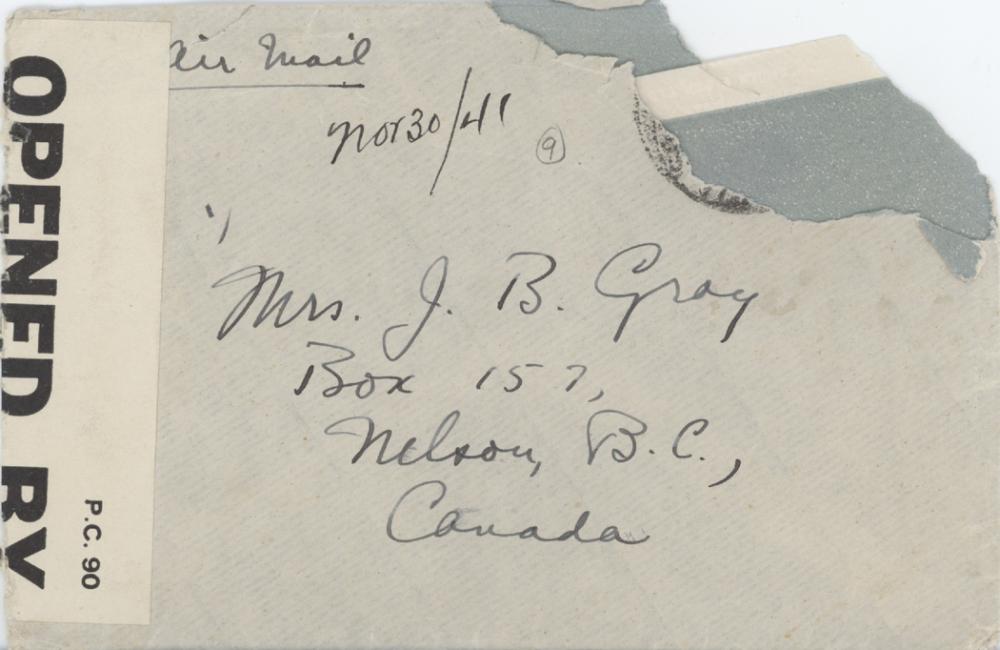 Air Mail
Nov 30/41
9
Mrs. J. B. Gray
Box 157,
Nelson, B.C.,
Canada
OPENED BY
P.C. 90